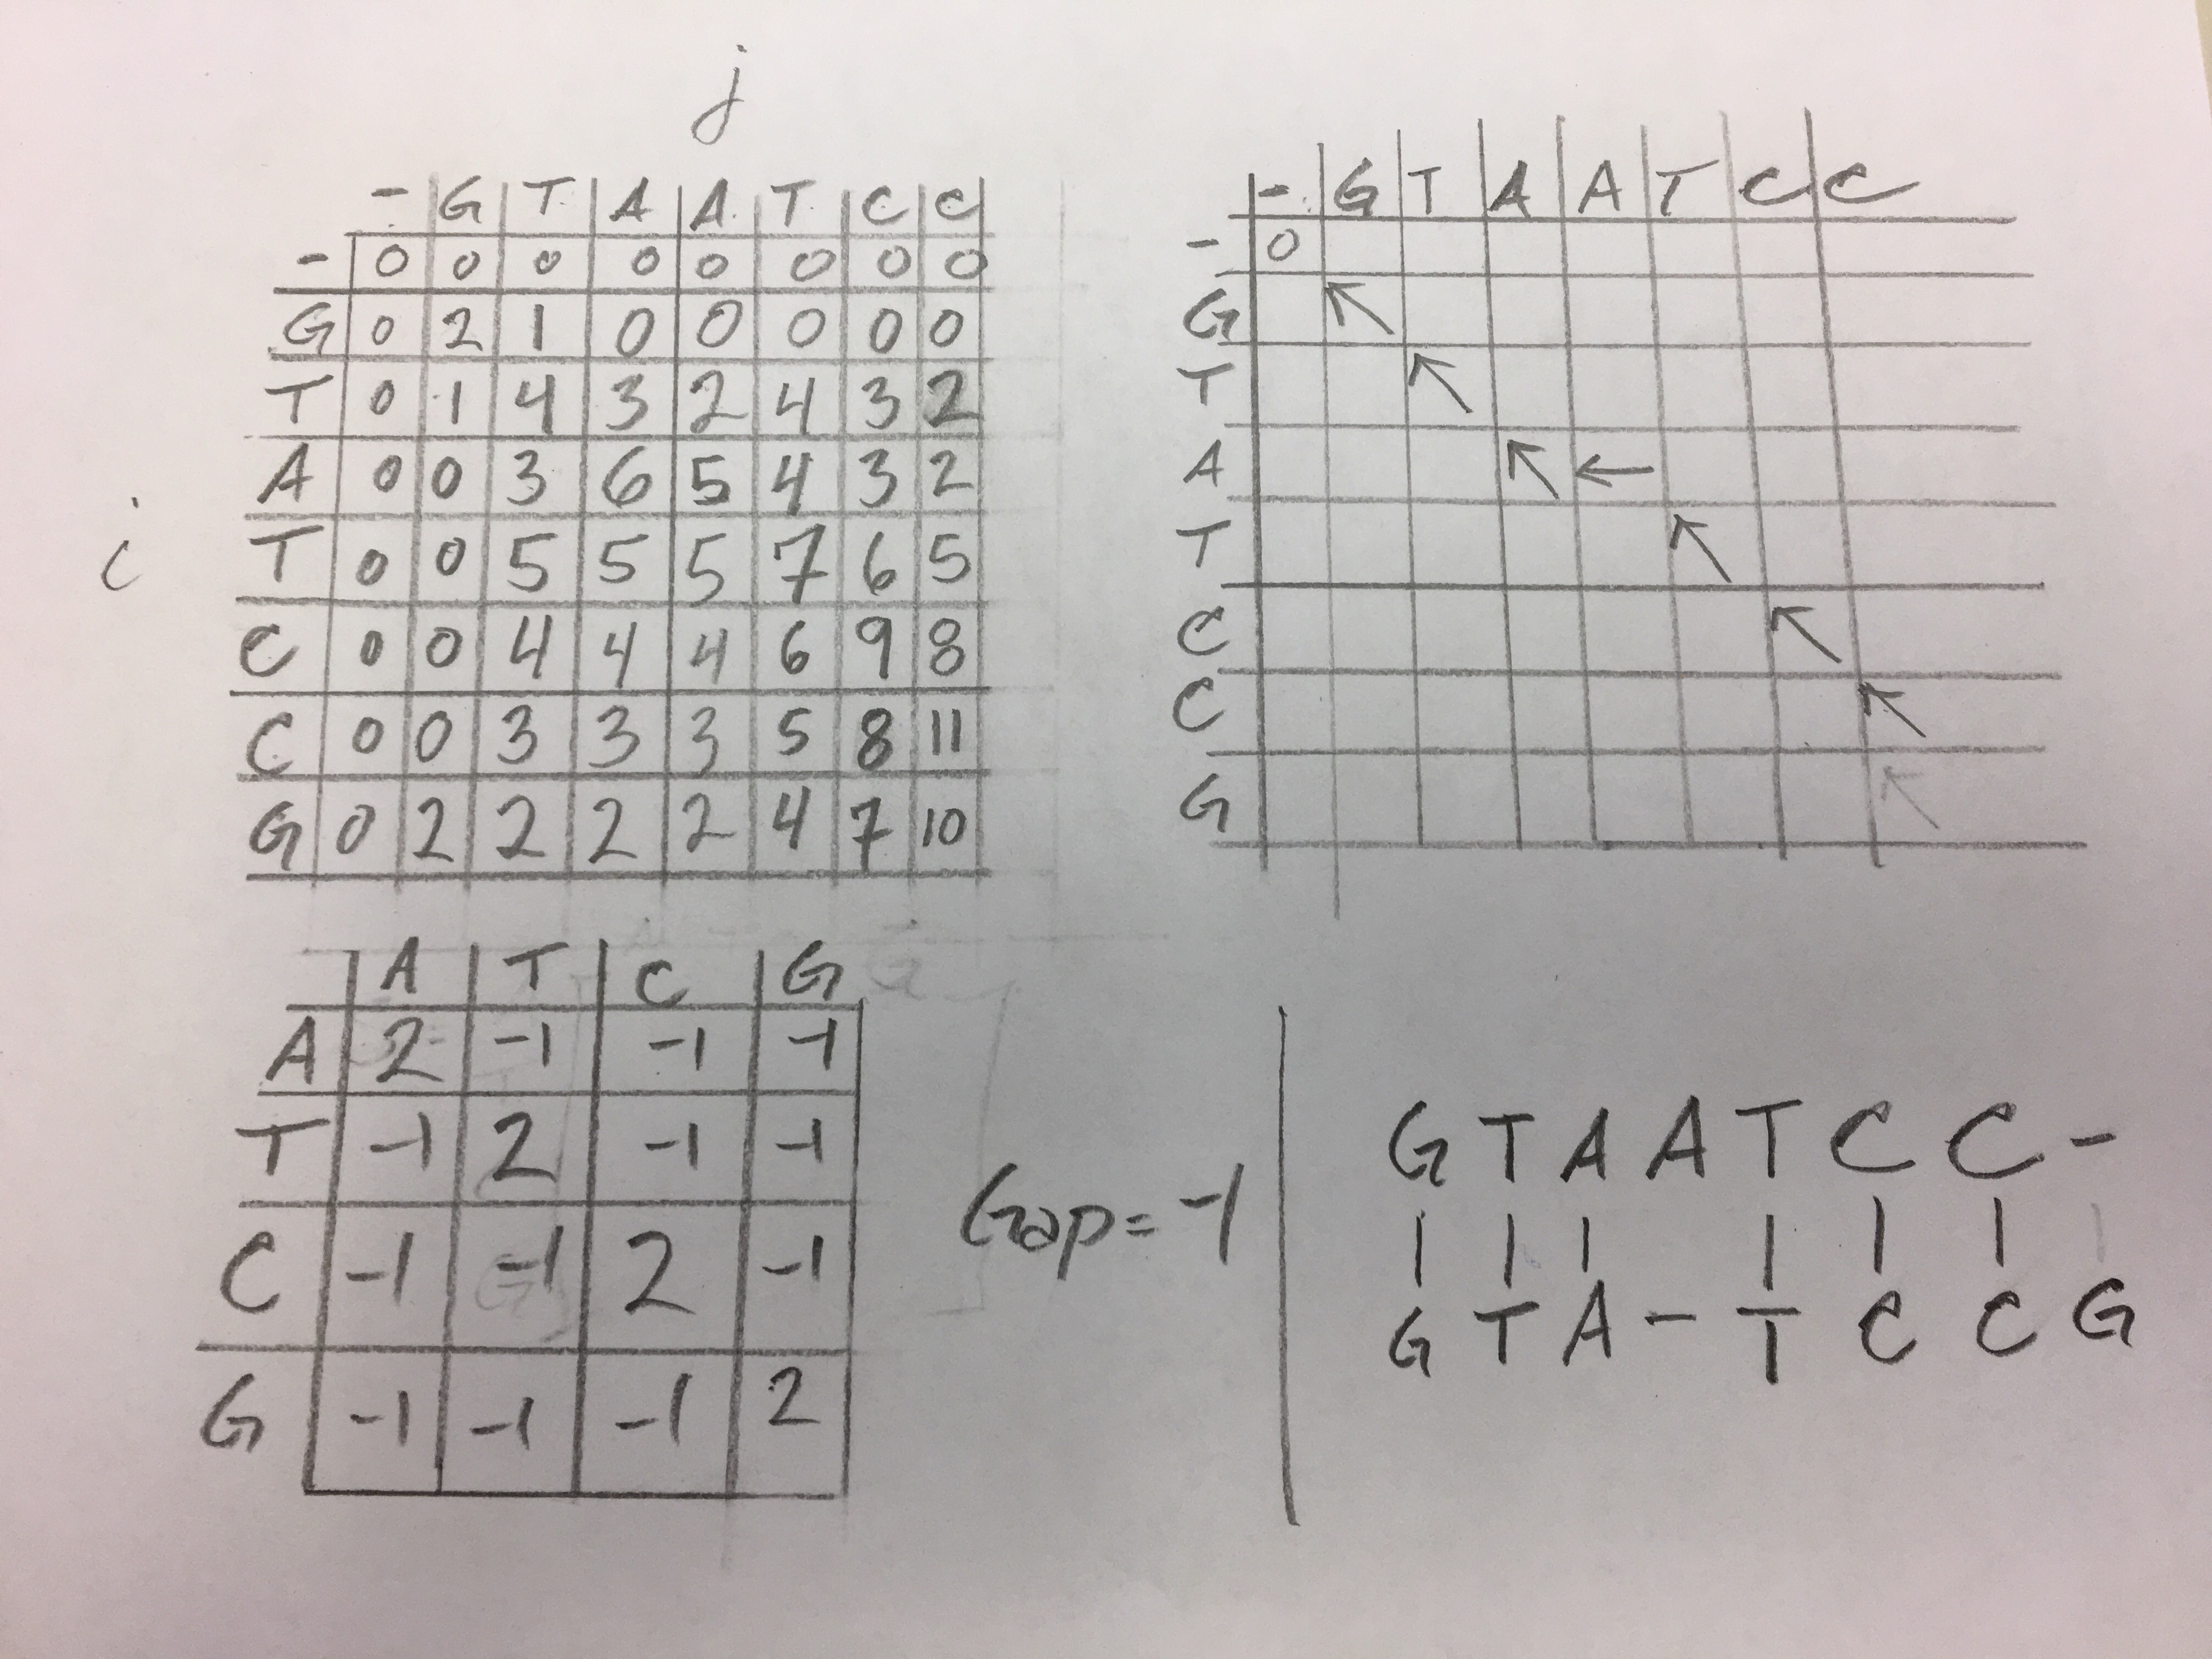 j
- G T A A T C C
- 0 0 0 0 0 0 0 0
G 0 2 1 0 0 0 0 0
T 0 1 4 3 2 4 3 2
A 0 0 3 6 5 4 3 2
i
T 0 0 5 5 5 7 6 5
C 0 0 4 4 4 6 9 8
C 0 0 3 3 3 5 8 11
G 0 2 2 2 2 4 7 10
- G T A A T C C
- 0
G ↖
T ↖
A ↖ ←
T ↖
C ↖
C ↖
G ↖
A T C G
A 2 -1 -1 -1
T -1 2 -1 -1
C -1 -1 2 -1
G -1 -1 -1 2
Gap = -1
G T A A T C C -
| | | | | | |
G T A - T C C G